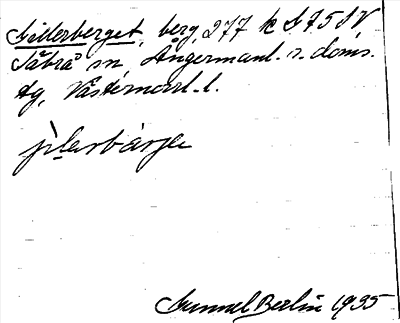 Gillerberget, berg, 277 k G 75 SV
Säbrå sn Ångermanl. s. doms.
tg, Västernorrl. l.
Gunnel Berlin 1935